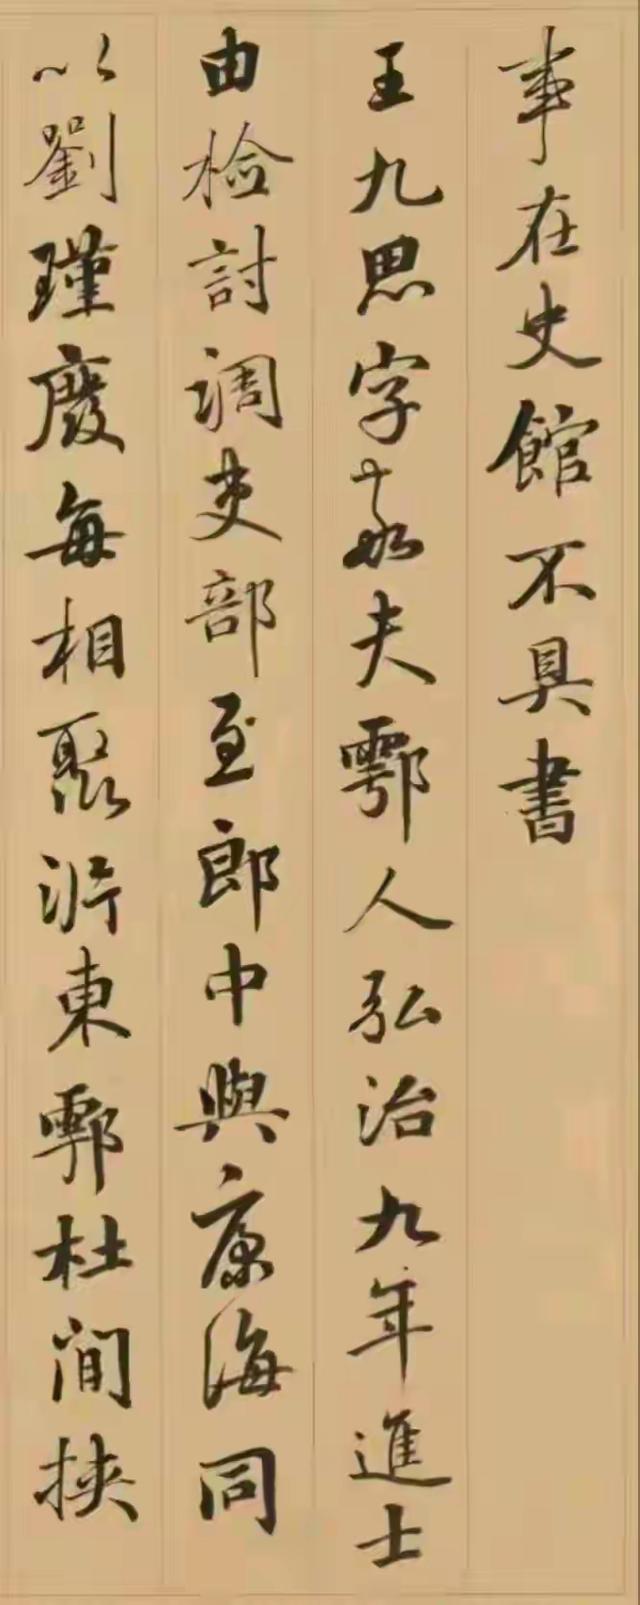 事在史館不具書
王九思字敬夫鄠人弘治九年進士
由檢討調吏部至郎中與康海同
以劉瑾廢每相聚沜東鄠杜間挾